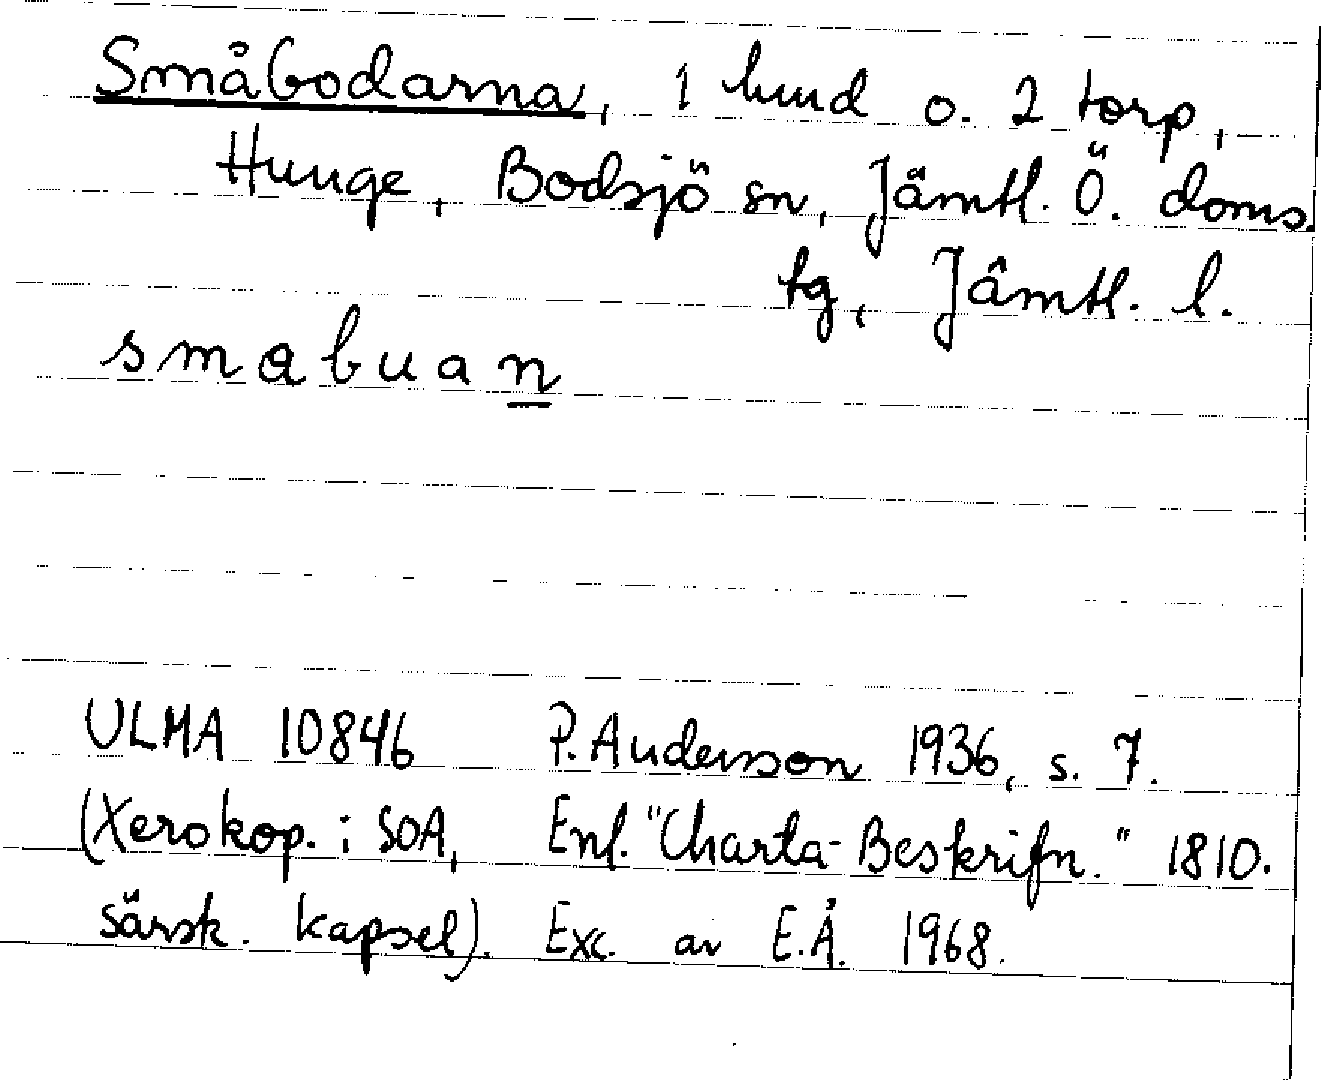 Småbodarna, 1 lund o. 2 torp,
Hunge, Bodsjö sn, Jämtl. Ö. doms.
tg, Jämtl. l.
smabuan
ULMA 10846 P. Andersson 1936, s. 7.
(Xerokop. i SOA, Enl. "Charta-Beskrifn." 1810.
särsk. kapsel). Exc. av E.Å. 1968.